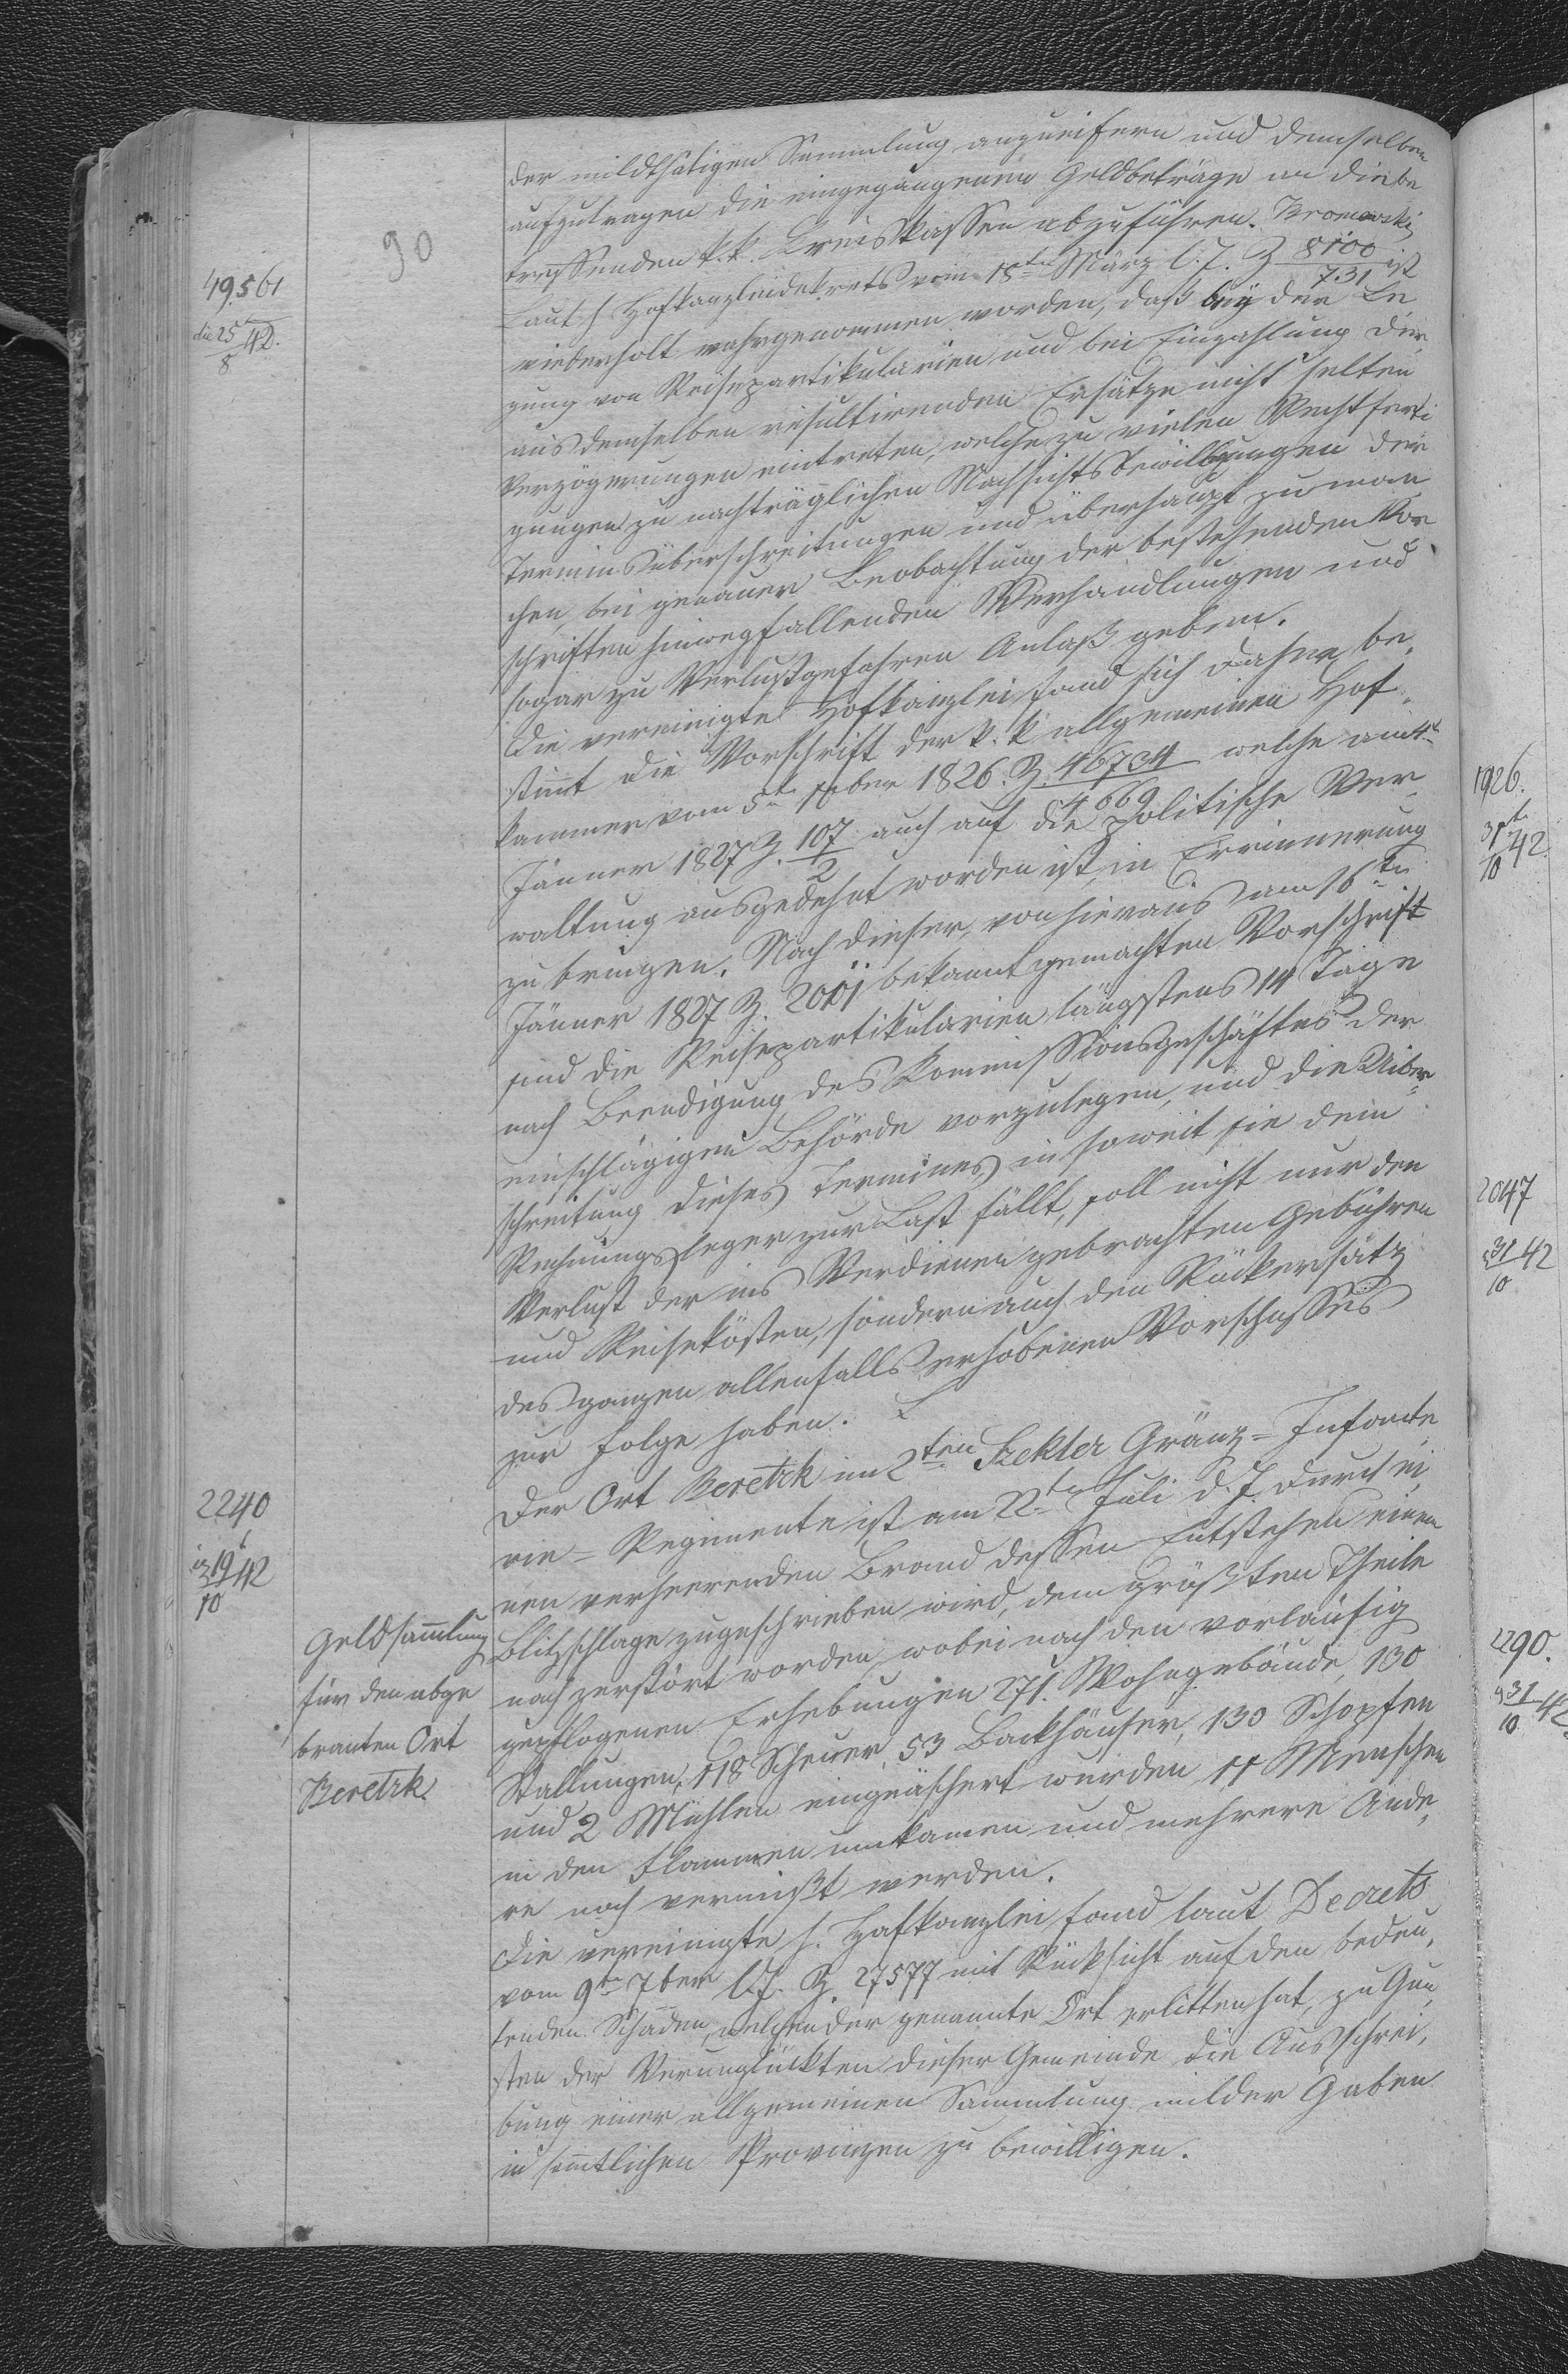 90
der mildthätigen Sammlung anzueifern und demselben
aufzutragen die eingegangenen Geldbeträge an die be
treffenden k.k. Kreiskassen abzuführen. Kromowski
49.561
die 25/8 42.
Laut h Hofkanzleidekrets vom 18ten März l. J. Z 8100/731 ist
wiederholt wahrgenommen worden, daß bey der Le
gung von Reisepartikularien und bei Einzahlung der
aus demselben resultirenden Ersätze nicht selten
Verzögerungen eintreten, welche zu vielen Rechtferti
gungen zu nachträglichen Nachsichtsbewilligungen der
Terminsüberschreitungen und überhaupt zu man
chen, bei genauer Beobachtung der bestehenden Vor
schriften hinwegfallenden Verhandlungen und
sogar zu Verlustgefahren Anlaß geben.
Die vereinigte Hofkanzlei fand sich daher be,
stimt die Vorschrift der k. k allgemeinen Hof,
kammer vom 5ten xber 1826. Z. 46734/4669 welche am 4t
Jänner 1827 Z. 107/2 auch auf die politische Ver,
waltung ausgedehnt worden ist, in Errinnerung
zu bringen. Nach dieser, von hieraus am 16ten
Jänner 1827 Z. 2001 bekannt gemachten Vorschrift
sind die Reisepartikularien längstens 14 Tage
nach Beendigung des Kommissionsgeschäftes der
einschlägigen Behörde vorzulegen, und die Uiber,
schreitung dieses Termines, in soweit sie dem
Rechnungsleger zur Last fällt, soll nicht nur den
Verlust der ins Verdienen gebrachten Gebühren
und Reisekösten, sondern auch den Rückersatz
des ganzen allenfalls erhobenen Vorschusses
zur Folge haben.
2240
19/10 42
Geldsammlung
für den abge
branten Ort
Beretzk.
Der Ort Beretzk im 2ten Szekler Gränz=Infante
rie=Regimente ist am 22ten Juli d. J. durch ei,
nen verheerenden Brand dessen Entstehen einem
Blitzschlage zugeschrieben wird, dem größten Theile
nach zerstört worden, wobei nach den vorläufig
gepflogenen Erhebungen 271. Wohngebäude, 130
Stallungen, 118 Scheuer, 53 Backhäuser, 130 Schopfen
und 2 Mühlen eingeäschert wurden 11 Menschen
in den Flammen umkamen und mehrere Ande,
re noch vermißt werden.
Die vereinigte h. Hofkanzlei fand laut Decrets
vom 9ten 7ber l. J. Z. 27577 mit Rücksicht auf den bedeu,
tenden Schaden, welchen der genannte Ort erlitten hat, zu Gun,
sten der Verunglückten dieser Gemeinde die Ausschrei,
bung einer allgemeinen Sammlung milder Gaben
in sämtlichen Provinzen zu bewilligen.
1926.
31/10 42.
2047
31/10 42
2290.
31/10 42